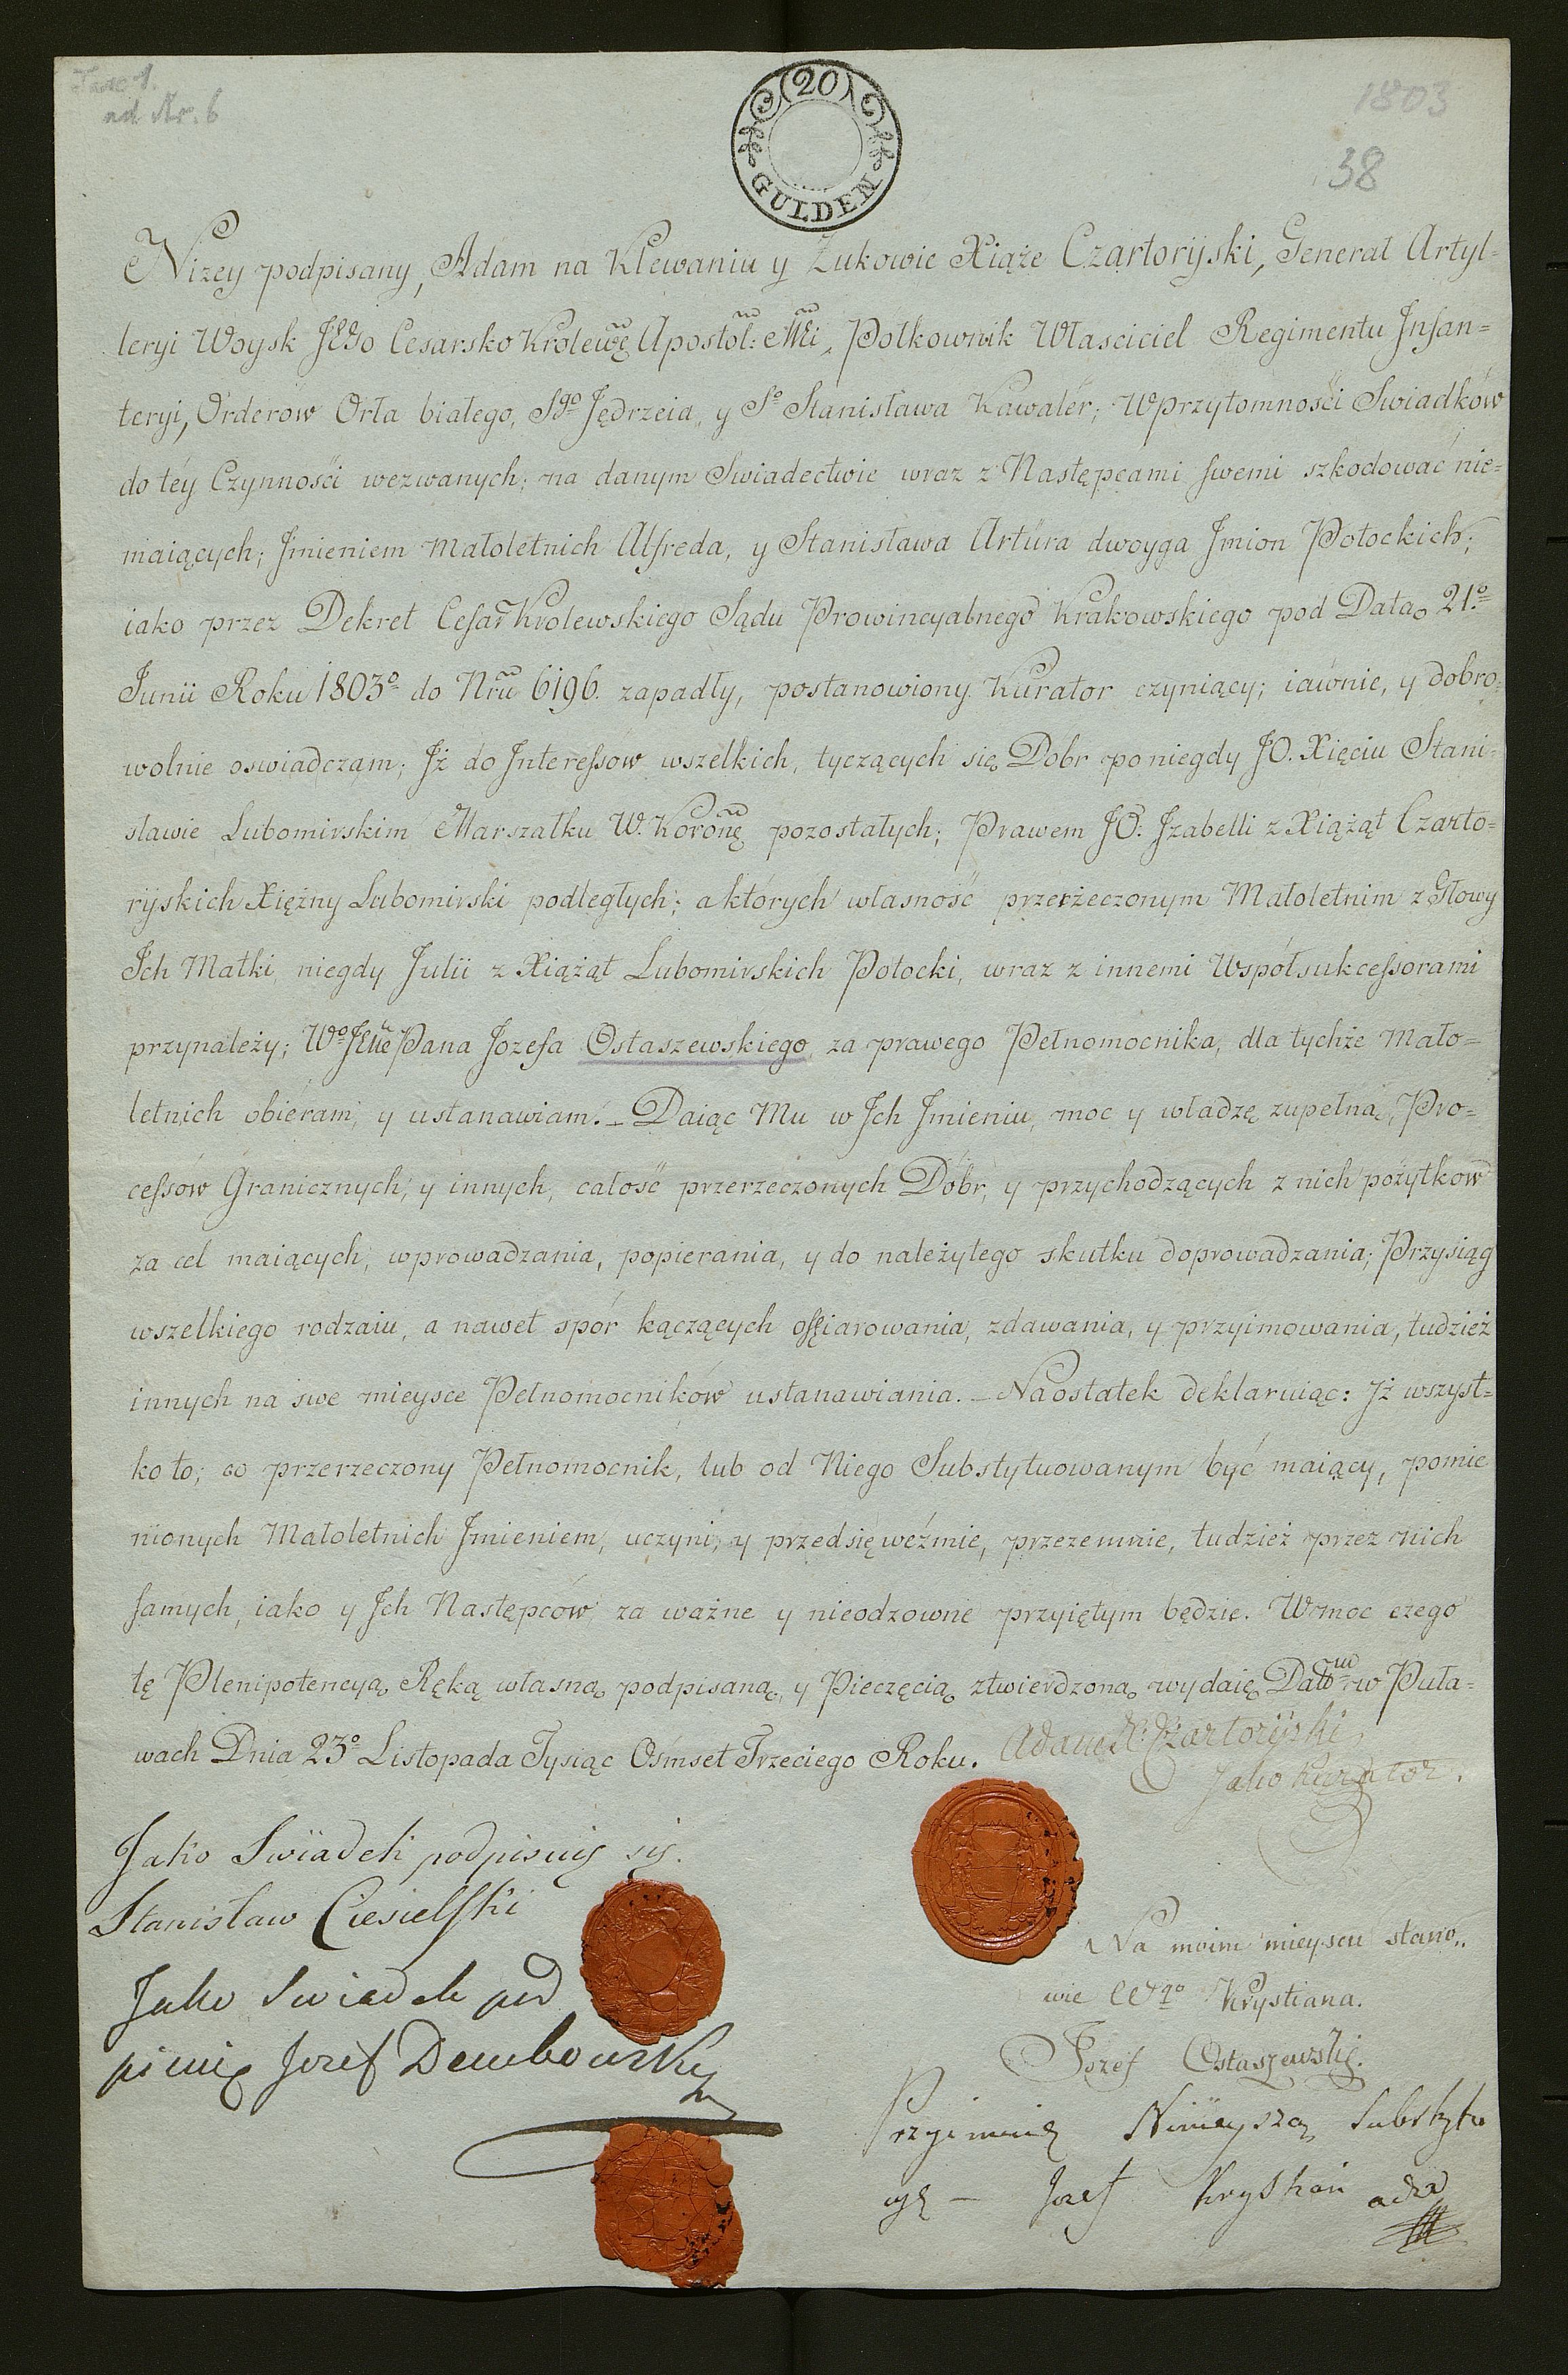 ad Nr. 6
1803
38
20
GULDEN
Niżey podpisany, Adam na Klewaniu y Żukowie Xiąże Czartoryski, General Artyl-
leryi Woysk JEgo Cesarsko Krolewę Apostol: Mci, Połkownik Własciciel Regimentu Infan=
teryi, Orderow Orła białego, Sgo Jędrzeia, y So Stanisława Kawaler; W przytomności Swiadków
do téy Czynności wezwanych; na danym Swiadectwie wraz z Następcami swemi szkodować nie=
maiących; Jmieniem Małoletnich Alfreda, y Stanisława Artura dwoyga Jmion Potockich;
iako przez Dekret Cesar Krolewskiego Sądu Prowincyalnego Krakowskiego pod Datą 21o
Junii Roku 1803o do Nru 6196. zapadły, postanowiony Kurator czyniący; iawnie, y dobro=
wolnie oswiadczam; Jż do Interessow wszelkich, tyczących się Dobr po niegdy JO. Xięciu Stani-
sławie Lubomirskim Marszałku W. Koronę pozostałych; Prawem JO: Jzabelli z Xiążąt Czarto=
ryskich Xiężny Lubomirski podległych; a których własność przerzeczonym Małoletnim z Głowy
Ich Matki, niegdy Julii z Xiążąt Lubomirskich Potocki, wraz z innemi Współsukcessorami
przynależy; Wo Pana Jozefa Ostaszewskiego, za prawego Pełnomocnika, dla tychże Mało=
letnich obieram, y ustanawiam. _ Daiąc Mu w Jch Jmieniu, moc y władzę zupełną, Pro=
cessów Granicznych, y innych, całość przerzeczonych Dóbr, y przychodzących z nich pożytkow
za cel maiących, wprowadzania, popierania, y do należytego skutku doprowadzania; Przysiąg
wszelkiego rodzaiu, a nawet spór kączących offiarowania, zdawania, y przyimowania, tudzież
innych na swe mieysce Pełnomocników ustanawiania. _ Naostatek deklaruiąc: Jż wszyst=
ko to; co przerzeczony Pełnomocnik, lub od Niego Substytuowanym być maiący, pomie
nionych Małoletnich Jmieniem, uczyni, y przedsięweźmie, przezemnie, tudzież przez nich
samych, iako y Jch Następców, za ważne y nieodzowne przyiętym będzie. W moc czego
tę Plenipotencyą, Ręką własną podpisaną, y Pieczęcią ztwierdzoną wydaię. Datt w Puła=
wach Dnia 23o Listopada Tysiąc Ośmset Trzeciego Roku. Adam X: Czartoryski
Jako Kurator.
Jako Swiadek podpisuię się.
Stanisław Ciesielski
Na moim mieyscu stano,,
wie Wgo Krystiana.
Jako Swiadek pod
pisuię Jozef Dembowsky
Jozef Ostaszewski.
Przyimuię Ninieyszą Substytu
cyę — Jozef Krystian